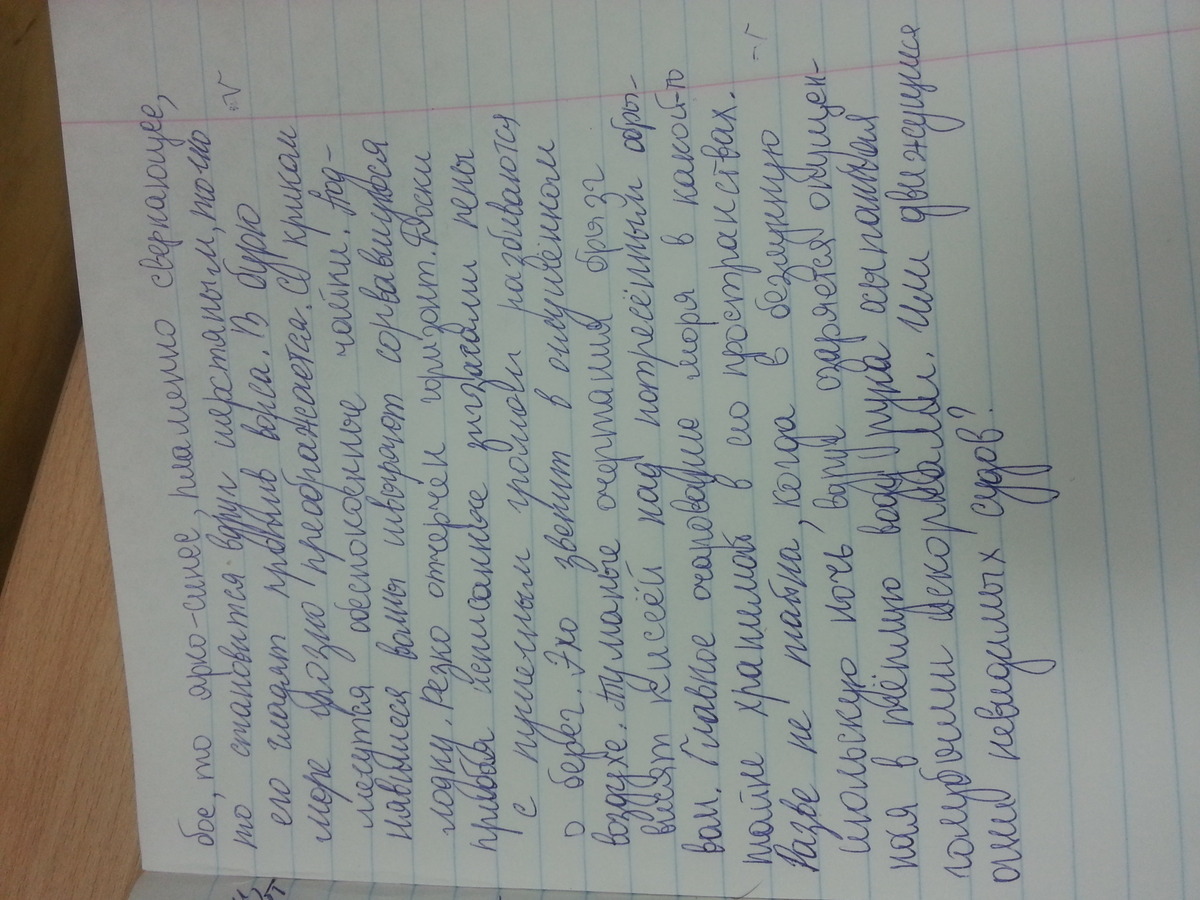 обое, то ярко-синее, пламенно сверкающее,
то становится вдруг шерстяным, точно
его гладят против ворса. В бурю
море грозно преображается. С криком
мечутся обеспокоенные чайки. Под-
навшиеся волны швыряют сорвавшуюся
лодку. Резко отчерчен горизонт. Доски
прибоя исписанные зигзагами пены
с пушечным громом разбиваются
о берег. Эхо звенит в оглушённом
воздухе. Туманые очертания брязг
висят кисеёй над потресённым обры-
вом. Главное очарование моря в какой-то
тайне хранимой в его пространствах.
Разве не тайна, когда в безлунную
июльскую ночь вдруг озаряется опущен-
ная в тёмную воду рука осыпанная
голубыми искорками. Или движущиеся
огни невидимых судов?